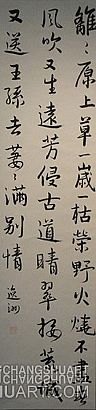 離〻原上草一歲一枯榮野火燒不盡春
風吹又生遠芳侵古道晴翠接荒城
又送王孫去萋〻滿別情
逸洲
CHANGSHUART
HUART.COM